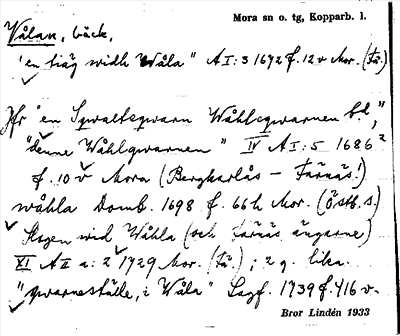 Mora sn o. tg, Kopparb. l.
Vålan, bäck,
"en träg widh Wåla" A I: 3 1672 f. 12 v Mor. (Fä.)
Jfr "en Sqwaltqwarn Wåhlqwarnen bd",
"denne Wåhlqwarnen" IV A I: 5 1686
f. 10 v Mora (Bergkarlås – Färnäs!)
wåhla Domb. 1698 f. 66 h Mor. (Östb. s.)
Stegen wid Wåhla (och Färnäs ängarne)
XI A II a: 2 1729 Mor. (Fä.); 2 g. lika.
"qwarneställe, i Wåla" Lagf. 1739 f. 416 v.
Bror Lindén 1933